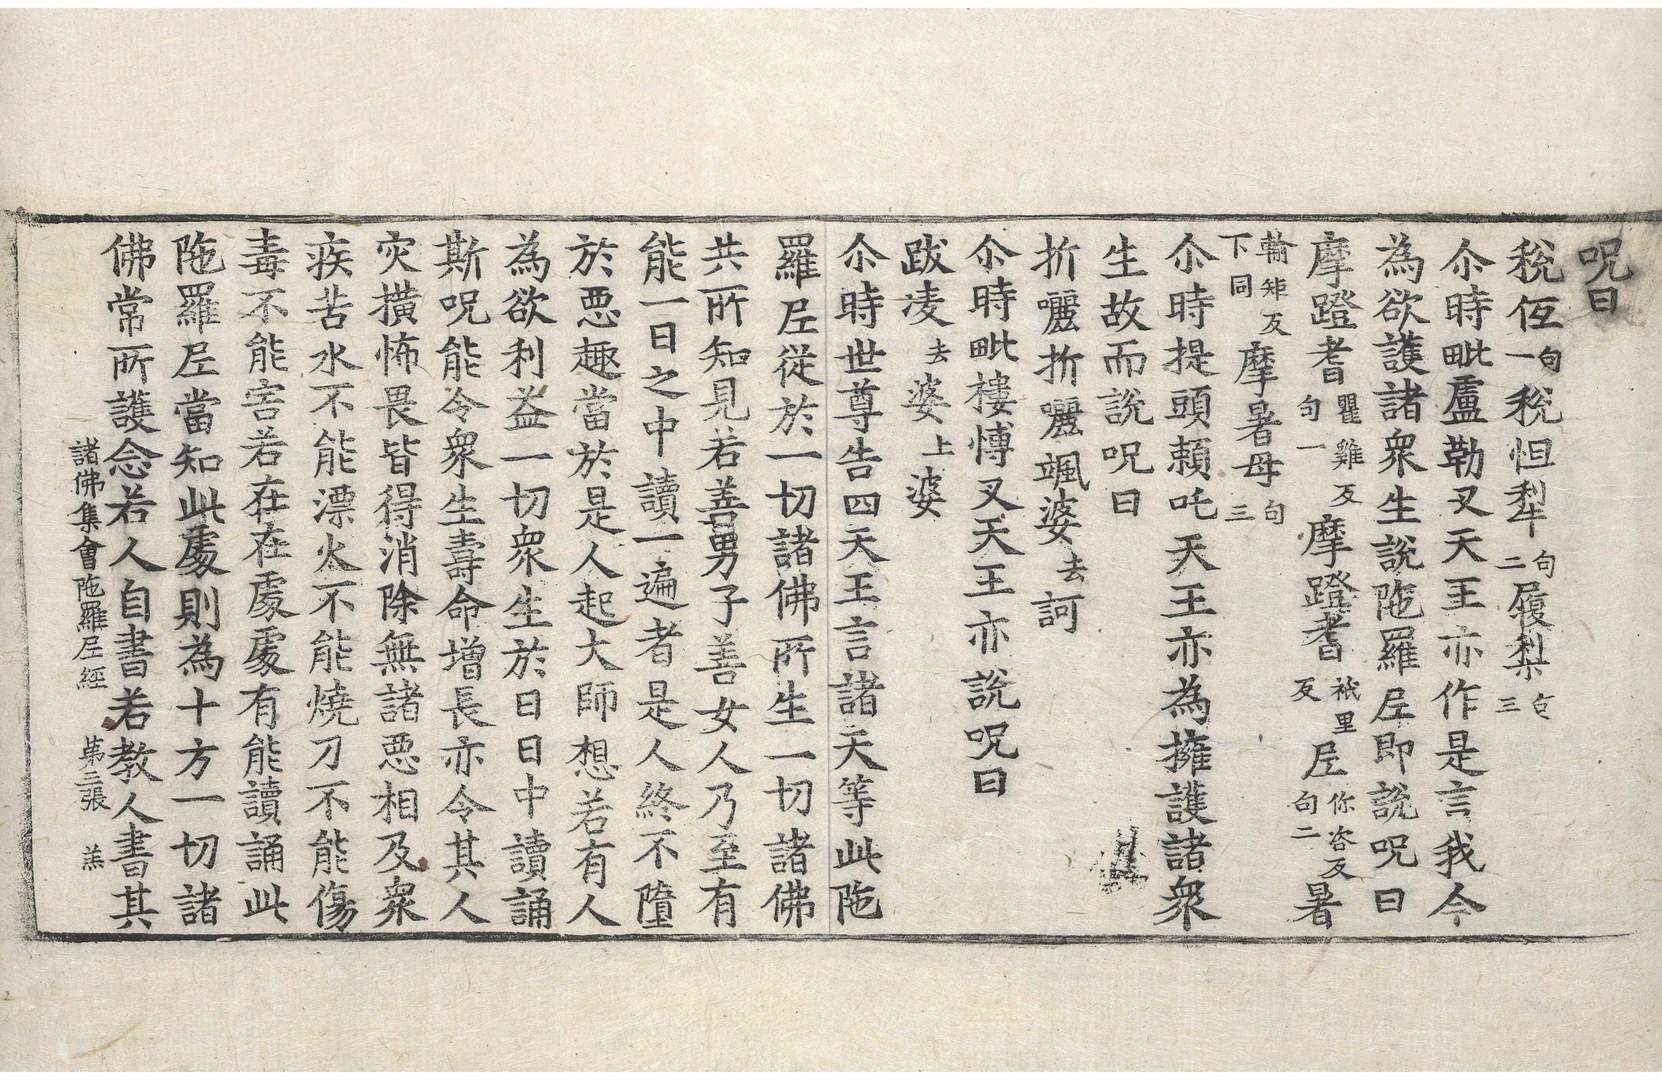 呪曰
稅侸一句稅怛犁二句履梨三句
尒時毗盧勒叉天王亦作是言我今
為欲護諸衆生說陁羅𡰱即說呪曰
摩蹬耆瞿雞反句一摩蹬耆祇里反𡰱你咨反句二暑
輸矩反下同摩暑母句三
尒時提頭頼吒天王亦為擁護諸衆
生故而說呪曰
折囄折囄颯婆去訶
尒時毗樓愽叉天王亦說呪曰
跋凌去婆上婆
尒時世尊告四天王言諸天等此陁
羅𡰱從於一切諸佛所生一切諸佛
共所知見若善男子善女人乃至有
能一日之中讀一遍者是人終不墮
於惡趣當於是人起大師想若有人
為欲利益一切衆生於日日中讀誦
斯呪能令衆生壽命增長亦令其人
灾撗怖畏皆得消除無諸惡相及衆
疾苦水不能漂火不能燒刀不能傷
毒不能害若在在處處有能讀誦此
陁羅𡰱當知此處則為十方一切諸
佛常所護念若人自書若教人書其
諸佛集會陁羅𡰱經 第三張 羔